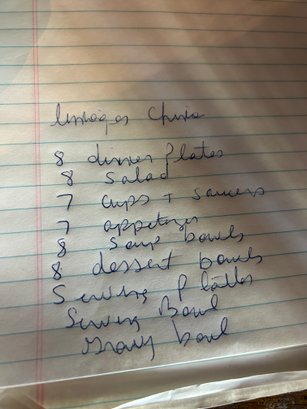 China
8 dinner plates
8 salad
7 cups + saucers
7 appetizer
8 soup bowls
8 dessert bowls
Serving Platter
Serving Bowl
Gravy bowl